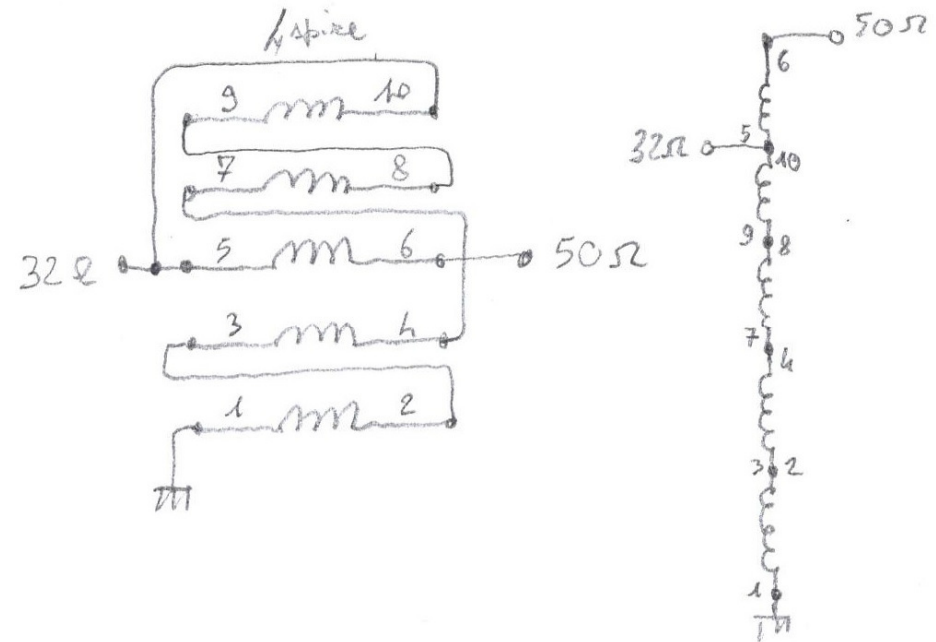 4 spire
9 10
7 8
32Ω 5 6 50Ω
3 4
1 2
50Ω
6
32Ω 5
10
9 8
7 4
3 2
1